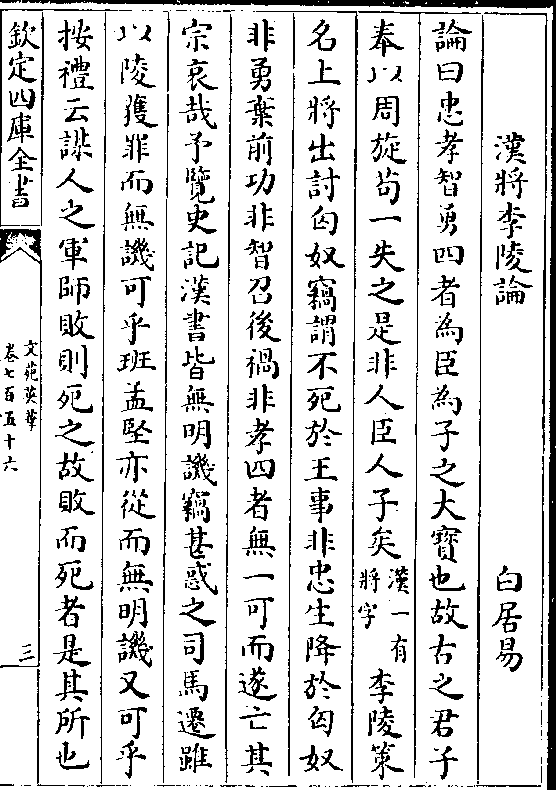 漢將李陵論　白居易
論曰忠孝智勇四者為臣為子之大寳也故古之君子
奉以周旋苟一失之是非人臣人子矣漢一有將字李陵策
名上將出討匈奴竊謂不死於王事非忠生降於匈奴
非勇棄前功非智召後禍非孝四者無一可而遂亡其
宗哀哉予覽史記漢書皆無明譏竊甚惑之司馬遷雖
以陵獲罪而無譏可乎班孟堅亦從而無明譏又可乎
按禮云謀人之軍師敗則死之故敗而死者是其所也
欽定四庫全書
文苑英華
卷七百五十六
三